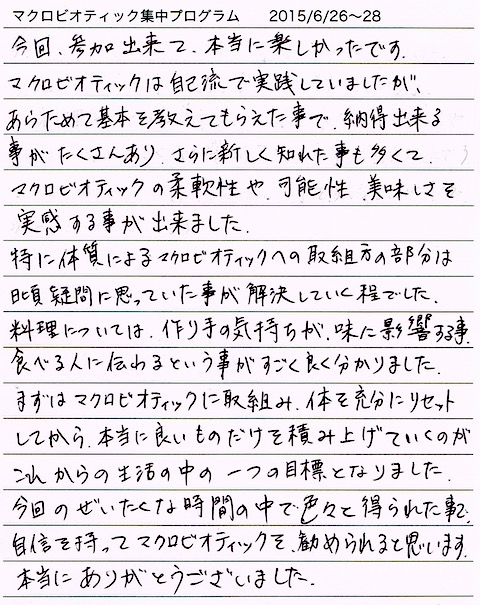 マクロビオティック集中プログラム　2015/6/26〜28
今回、参加出来て、本当に楽しかったです。
マクロビオティックは自己流で実践していましたが、
あらためて基本を教えてもらえた事で、納得出来る
事がたくさんあり、さらに新しく知れた事も多くて、
マクロビオティックの柔軟性や、可能性、美味しさを
実感する事が出来ました。
特に体質によるマクロビオティックへの取組方の部分は
日頃疑問に思っていた事が解決していく程でした。
料理については、作り手の気持ちが、味に影響する事、
食べる人に伝わるという事がすごく良く分かりました。
まずはマクロビオティックに取組み、体を充分にリセット
してから、本当に良いものだけを積み上げていくのが
これからの生活の中の一つの目標となりました。
今回のぜいたくな時間の中で色々と得られた事で、
自信を持ってマクロビオティックを、勧められると思います。
本当にありがとうございました。